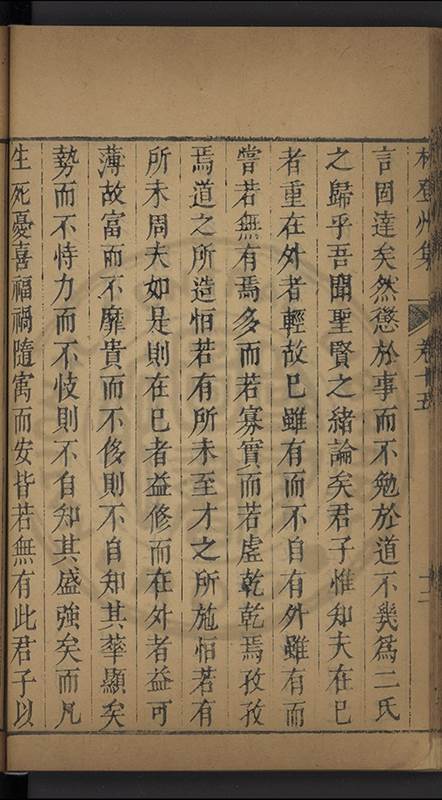 林登州集 卷十五 十二
言固達矣然愆於事而不勉於道不幾爲二氏
之歸乎吾聞聖賢之緒論矣君子惟知夫在已
者重在外者輕故已雖有而不自有外雖有而
嘗若無有焉多而若寡實而若虛乾乾焉孜孜
焉道之所造怕若有所未至才之所施怕若有
所未周夫如是則在已者益修而在外者益可
薄故富而不靡貴而不侈則不自知其華顯矣
勢而不恃力而不忮則不自知其盛強矣而凡
生死憂喜福禍隨寓而安皆若無有此君子以